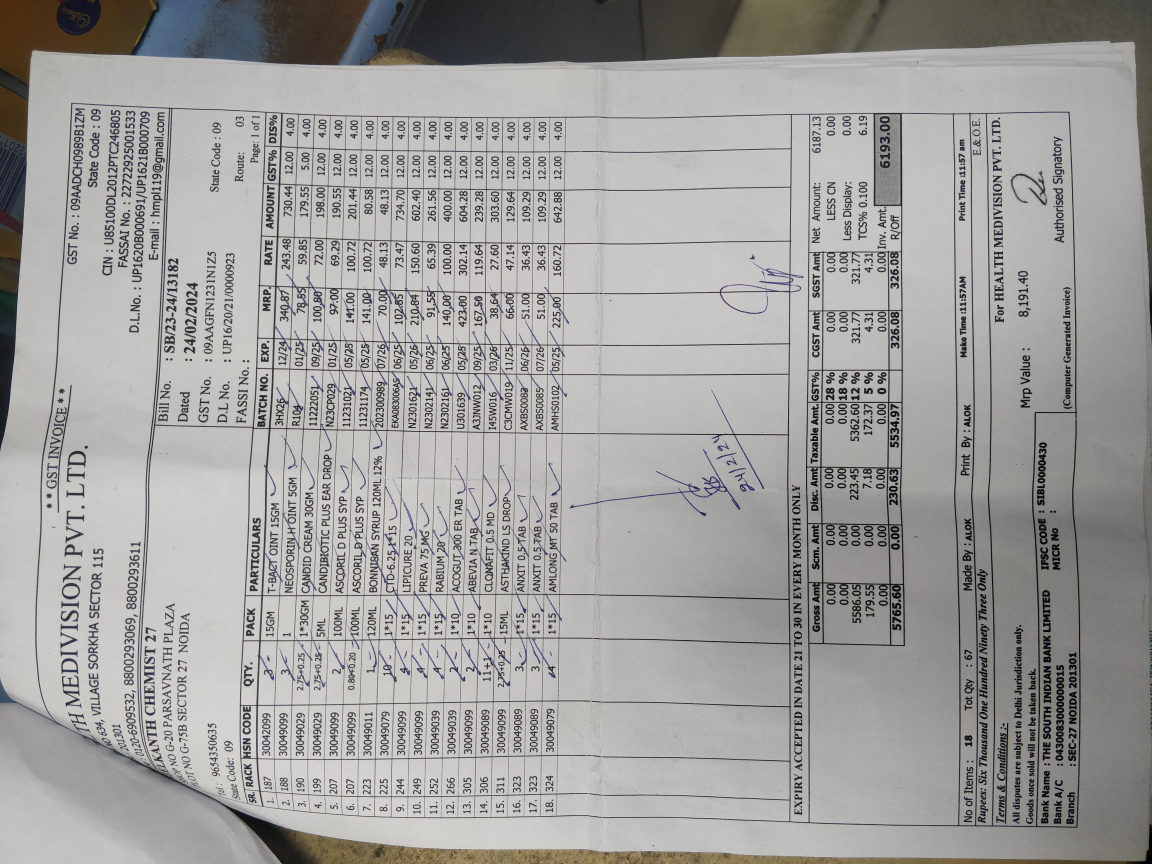 ** GST INVOICE **
TH MEDIVISION PVT. LTD.
634, VILLAGE SORKHA SECTOR 115
201301
: 0120-6909532, 8800293069, 8800293611
GST No. : 09AADCH0989B1ZM
State Code : 09
CIN : U85100DL2012PTC246805
FASSAI No. : 22722925001533
D.L.No. : UP1620B000691/UP1621B000709
E-mail : hmpl119@gmail.com
ELKANTH CHEMIST 27
OP NO G-20 PARSAVNATH PLAZA
LOT NO G-75B SECTOR 27 NOIDA
9654350635
State Code: 09
Bill No. : SB/23-24/13182
Dated : 24/02/2024
GST No. : 09AAGFN1231N1Z5 State Code : 09
D.L No. : UP16/20/21/0000923
FASSI No. : Route: 03
Page: 1 of 1
SR. RACK HSN CODE QTY. PACK PARTICULARS BATCH NO. EXP. MRP. RATE AMOUNT GST% DIS%
1. 187 30042099 3 15GM T-BACT OINT 15GM 3HX26 12/24 340.87 243.48 730.44 12.00 4.00
2. 188 30049099 3 1 NEOSPORIN H OINT 5GM R104 01/25 78.85 59.85 179.55 5.00 4.00
3. 190 30049029 2.75+0.25 1*30GM CANDID CREAM 30GM 11222051 09/25 100.80 72.00 198.00 12.00 4.00
4. 199 30049029 2.75+0.25 5ML CANDIBIOTIC PLUS EAR DROP N23CP029 01/25 97.00 69.29 190.55 12.00 4.00
5. 207 30049099 2 100ML ASCORIL D PLUS SYP 11231021 05/25 141.00 100.72 201.44 12.00 4.00
6. 207 30049099 0.80+0.20 100ML ASCORIL D PLUS SYP 11231174 05/25 141.00 100.72 80.58 12.00 4.00
7. 223 30049011 1 120ML BONNISAN SYRUP 120ML 12% 202300989 07/26 70.00 48.13 48.13 12.00 4.00
8. 225 30049079 10 1*15 CTD-6.25 1*15 EKA083006AS 06/25 102.85 73.47 734.70 12.00 4.00
9. 244 30049099 4 1*15 LIPICURE 20 N2301621 05/26 210.84 150.60 602.40 12.00 4.00
10. 249 30049099 4 1*15 PREVA 75 MG N2302141 06/25 91.55 65.39 261.56 12.00 4.00
11. 252 30049039 4 1*15 RABIUM 20 N2302161 06/25 140.00 100.00 400.00 12.00 4.00
12. 266 30049039 2 1*10 ACOGUT 300 ER TAB U301639 05/26 423.00 302.14 604.28 12.00 4.00
13. 305 30049099 2 1*10 ABEVIA N TAB A3JNW012 09/25 167.50 119.64 239.28 12.00 4.00
14. 306 30049089 11+1 1*10 CLONAFIT 0.5 MD I45W016 03/26 38.64 27.60 303.60 12.00 4.00
15. 311 30049099 2.75+0.25 15ML ASTHAKIND LS DROP C3CMW019 11/25 66.00 47.14 129.64 12.00 4.00
16. 323 30049089 3 1*15 ANXIT 0.5 TAB AXBS0083 06/26 51.00 36.43 109.29 12.00 4.00
17. 323 30049089 3 1*15 ANXIT 0.5 TAB AXBS0085 07/26 51.00 36.43 109.29 12.00 4.00
18. 324 30049079 4 1*15 AMLONG MT 50 TAB AMHS0102 05/25 225.00 160.72 642.88 12.00 4.00
24/2/24
EXPIRY ACCEPTED IN DATE 21 TO 30 IN EVERY MONTH ONLY
Gross Amt Scm. Amt Disc. Amt Taxable Amt. GST% CGST Amt SGST Amt
0.00 0.00 0.00 0.00 28 % 0.00 0.00
0.00 0.00 0.00 0.00 18 % 0.00 0.00
5586.05 0.00 223.45 5362.60 12 % 321.77 321.77
179.55 0.00 7.18 172.37 5 % 4.31 4.31
0.00 0.00 0.00 0.00 0 % 0.00 0.00
5765.60 0.00 230.63 5534.97 326.08 326.08
Net Amount: 6187.13
LESS CN 0.00
Less Display: 0.00
TCS% 0.100 6.19
Inv. Amt. 6193.00
R/Off
No of Items : 18 Tot Qty : 67 Made By : ALOK Print By : ALOK Make Time :11:57AM Print Time :11:57 am
Rupees: Six Thousand One Hundred Ninety Three Only E.& O.E.
Terms & Conditions :-
All disputes are subject to Delhi Jurisdiction only.
Goods once sold will not be taken back.
Mrp Value : 8,191.40
For HEALTH MEDIVISION PVT. LTD.
Bank Name : THE SOUTH INDIAN BANK LIMITED IFSC CODE : SIBL0000430
Bank A/C : 0430083000000015 MICR No :
Branch : SEC-27 NOIDA 201301
(Computer Generated Invoice)
Authorised Signatory